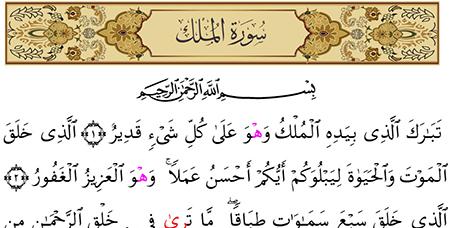 سُورَةُ المُلكِ
بِسْمِ اللَّهِ الرَّحْمَٰنِ الرَّحِيمِ
تَبَٰرَكَ ٱلَّذِى بِيَدِهِ ٱلْمُلْكُ وَهْوَ عَلَىٰ كُلِّ شَىْءٍ قَدِيرٌ ﴿١﴾ ٱلَّذِى خَلَقَ
ٱلْمَوْتَ وَٱلْحَيَوٰةَ لِيَبْلُوَكُمْ أَيُّكُمْ أَحْسَنُ عَمَلًا ۚ وَهْوَ ٱلْعَزِيزُ ٱلْغَفُورُ ﴿٢﴾
ٱلَّذِى خَلَقَ سَبْعَ سَمَٰوَٰتٍ طِبَاقًا ۖ مَّا تَرَىٰ فِى خَلْقِ ٱلرَّحْمَٰنِ مِن